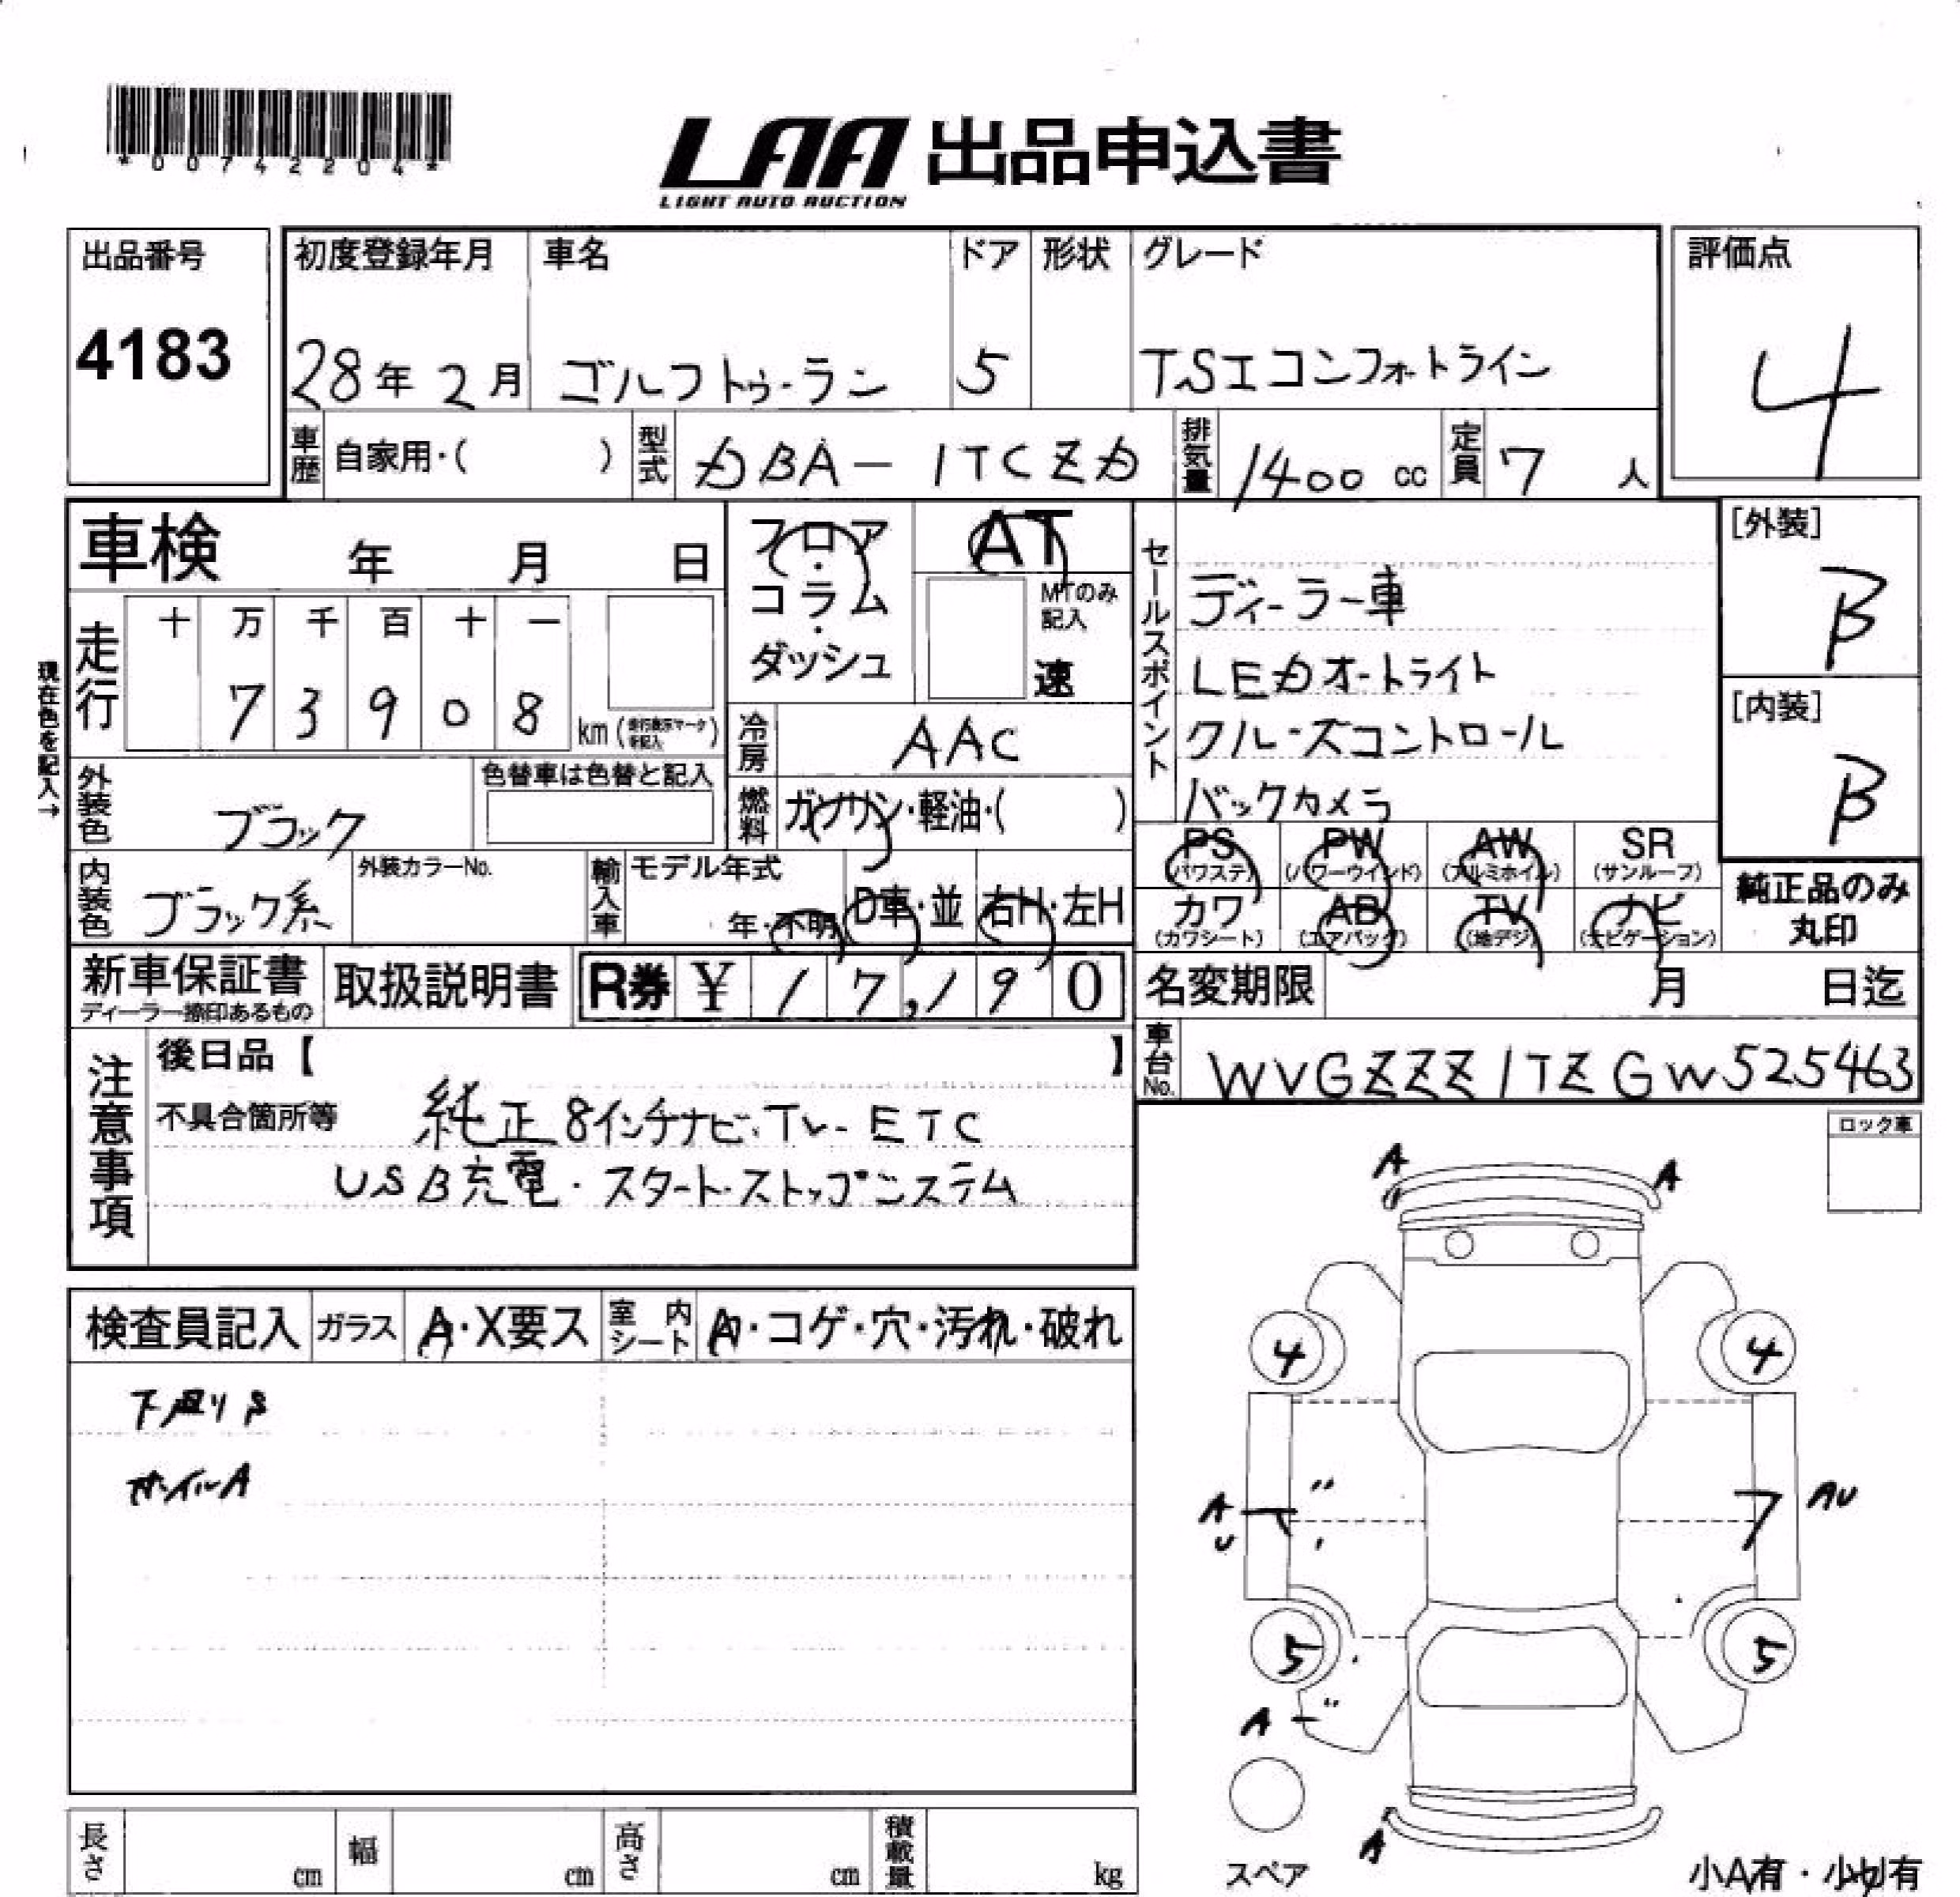 *00742204*
LAA 出品申込書
LIGHT AUTO AUCTION
出品番号
4183
初度登録年月 車名 ドア 形状 グレード
28年2月 ゴルフトゥーラン 5 TSIコンフォートライン
評価点
4
車歴 自家用・( ) 型式 DBA-1TCZD 排気量 1400 cc 定員 7 人
車検 年 月 日
フロア・コラム・ダッシュ
AT
MTのみ記入
速
走行
十 万 千 百 十 一
7 3 9 0 8 km(走行表示マーク等記入)
現在色を記入→
外装色 ブラック
色替車は色替と記入
冷房 AAC
燃料 ガソリン・軽油・( )
内装色 ブラック系
外装カラーNo.
輸入車 モデル年式
年・不明 D車・並 右H・左H
セールスポイント
ディーラー車
LEDオートライト
クルーズコントロール
バックカメラ
[外装]
B
[内装]
B
PS PW AW SR
(パワステ) (パワーウインド) (アルミホイル) (サンルーフ)
カワ AB TV ナビ
(カワシート) (エアバッグ) (地デジ) (ナビゲーション)
純正品のみ
丸印
新車保証書
ディーラー捺印あるもの
取扱説明書
R券 ¥ 17,190
名変期限 月 日迄
車台No. WVGZZZ1TZGW525463
注意事項
後日品【 】
不具合箇所等
純正8インチナビ・TV・ETC
USB充電・スタート・ストップシステム
ロック車
検査員記入 ガラス A・X要ス 室内シート A・コゲ・穴・汚れ・破れ
下廻りS
ホイルA
A A
4 4
A U 〃
AU
5 5
A 〃
A
スペア
小A有・小U有
長さ cm 幅 cm 高さ cm 積載量 kg